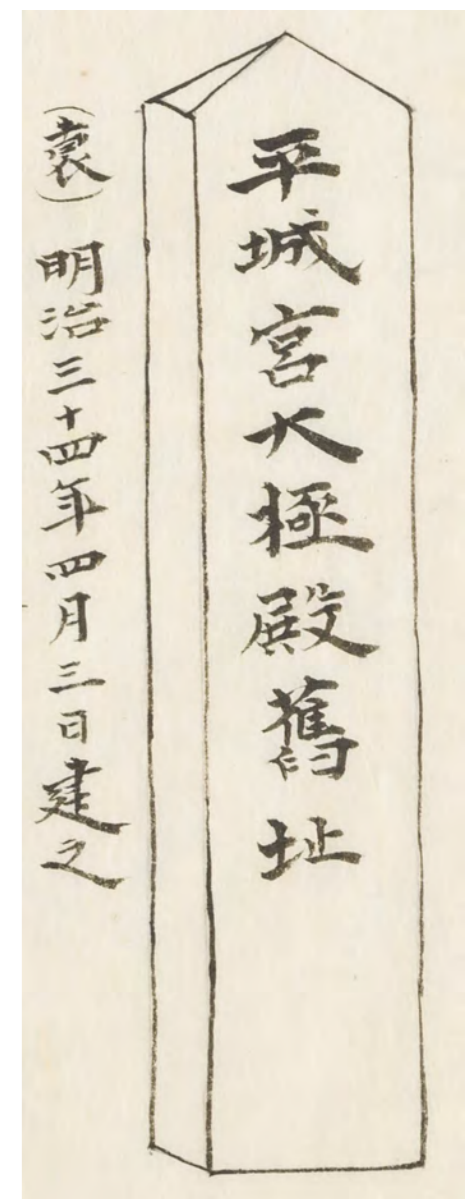 平城宮大極殿舊址
(裏) 明治三十四年四月三日建之